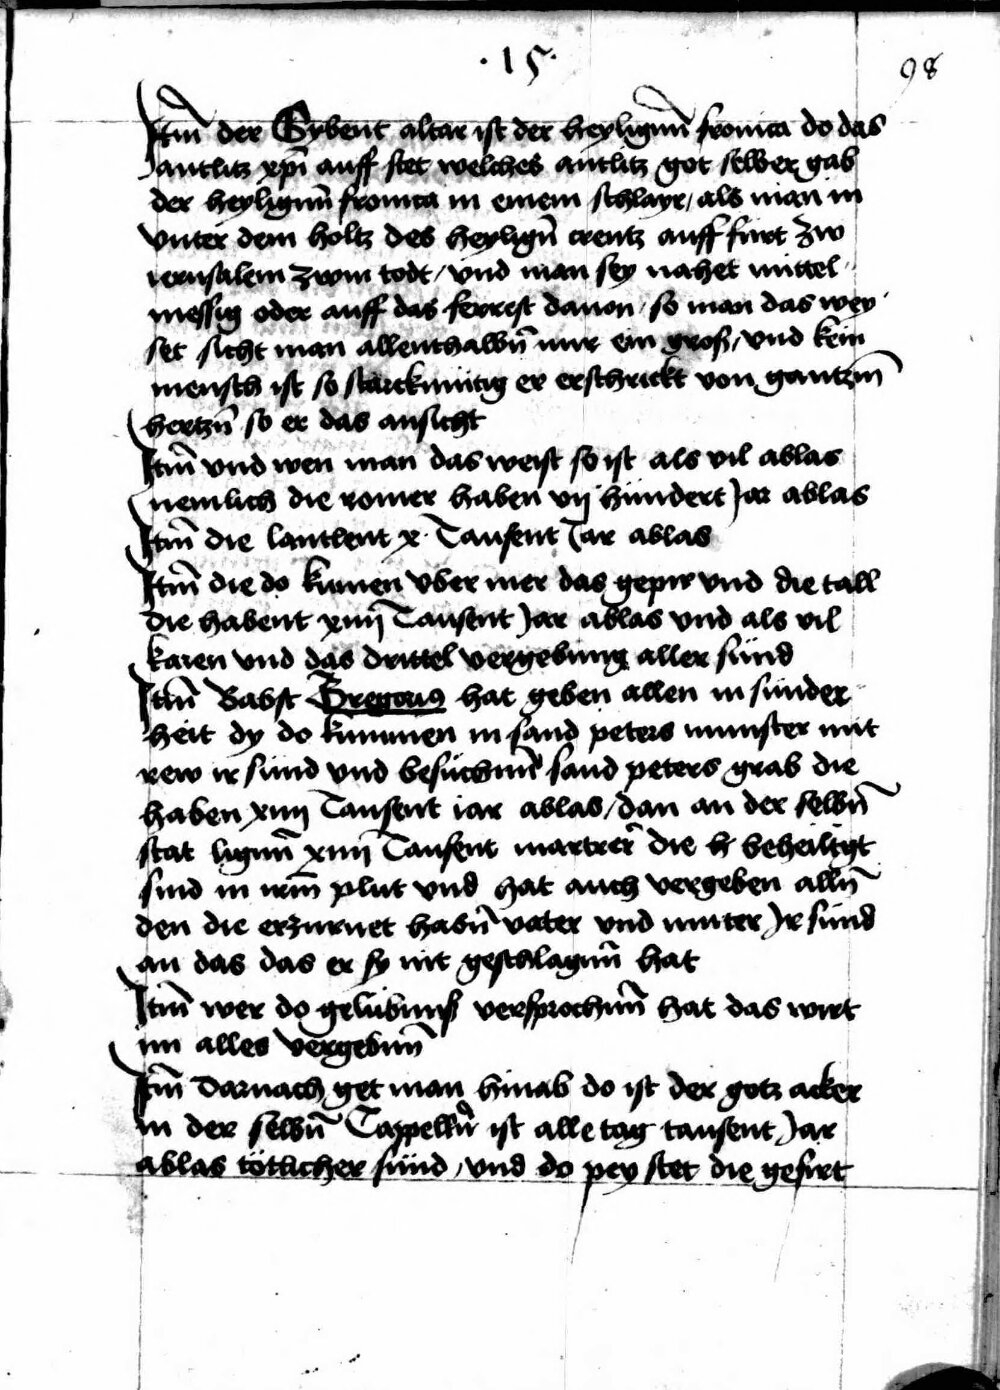 ·15·
98
Itm̄ der Sybent altar ist der heyligmn̄ fronica do das
antlitz xp̄i auff stet welches antlitz got selber gab
der heyligmn̄ fronica in einem schlayr / als man in
vnter dem holtz des heylign̄ creutz auff furt zw
ierusalem zwm todt / vnd man sey nahet mittel
messig oder auff das ferrest dauon / so man das wey
set sicht man allenthalbn̄ nur ein groß / vnd kein
mensch ist so starckmutig er erschrickt von gantzm̄
hertzn̄ so er das ansicht
Itm̄ vnd wen man das weist so ist als vil ablas
nemlich die romer haben vij hundert Jar ablas
Itm̄ die lantleut x · Tausent Jar ablas
Itm̄ die do kumen vber mer das gepir vnd die tall
die habent xiiij Tausent Jar ablas vnd als vil
karen vnd das drittel vergebung aller sünd
Itm̄ Babst Gregorius hat geben allen in sunder
heit dy do kummen in sand peters munster mit
rew ir sund vnd besuchnn̄ sand peters grab die
haben xiiij Tausent iar ablas / dan an der selbn̄
stat lignn̄ xiiij Tausent martrer̄ die h̄ beheiligt
sind in irm̄ plut vnd hat auch vergeben alln̄
den die erzurnet habn̄ vater vnd muter Jr sünd
an das das er sy nit geschlagnn̄ hat
Itm̄ wer do gelubnuß versprochnn̄ hat das wirt
im alles vergebnn̄
Itm̄ darnach get man hinab do ist der gotz acker
in der selbn̄ Cappelln̄ ist alle tag tausent Jar
ablas tötlicher sünd / vnd do pey stet die gefirt